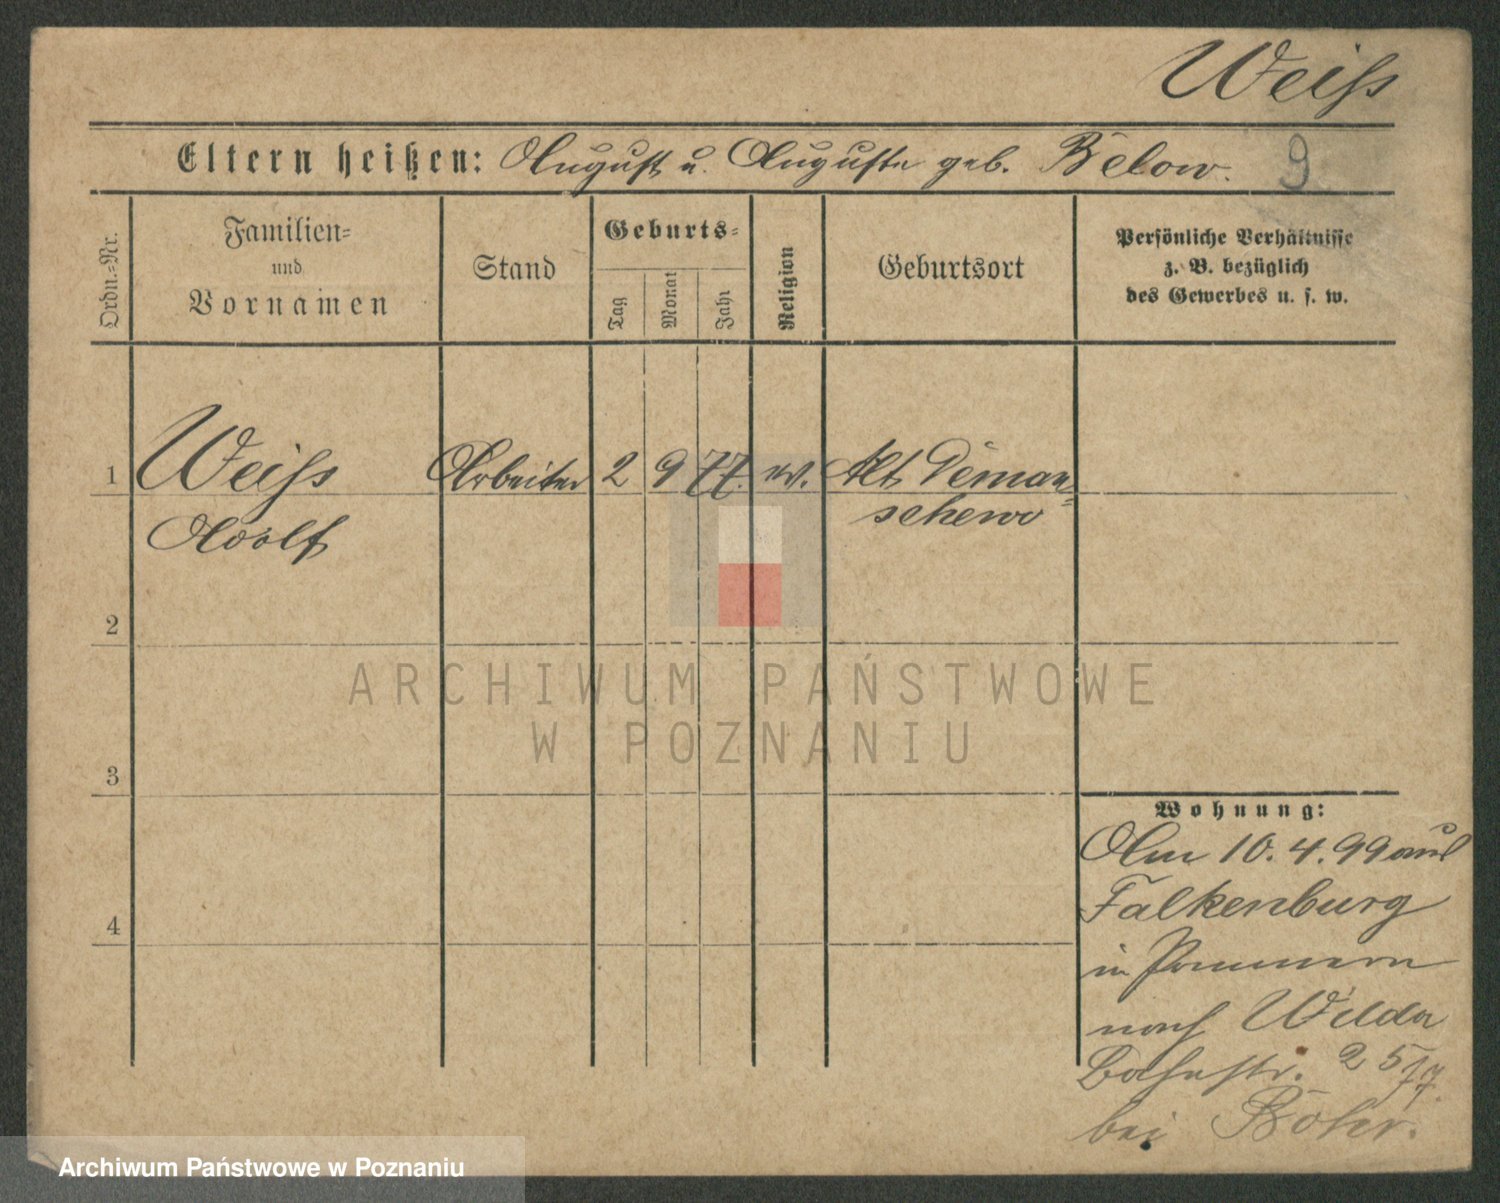 Weiß
Eltern heißen: August u. Auguste geb. Below.
9
Ordn.-Nr.
Familien-
und
Vornamen
Stand
Geburts-
Tag
Monat
Jahr
Religion
Geburtsort
Persönliche Verhältnisse
z. B. bezüglich
des Gewerbes u. s. w.
1 Weiß Arbeiter 2 9 77. ev. Alt Deman-
Adolf schewo
2
3
4
Wohnung:
Am 10.4.99 aus
Falkenburg
in Pommern
nach Wilda
Bahnstr. 25
bei
ARCHIWUM PAŃSTWOWE
W POZNANIU
Archiwum Państwowe w Poznaniu